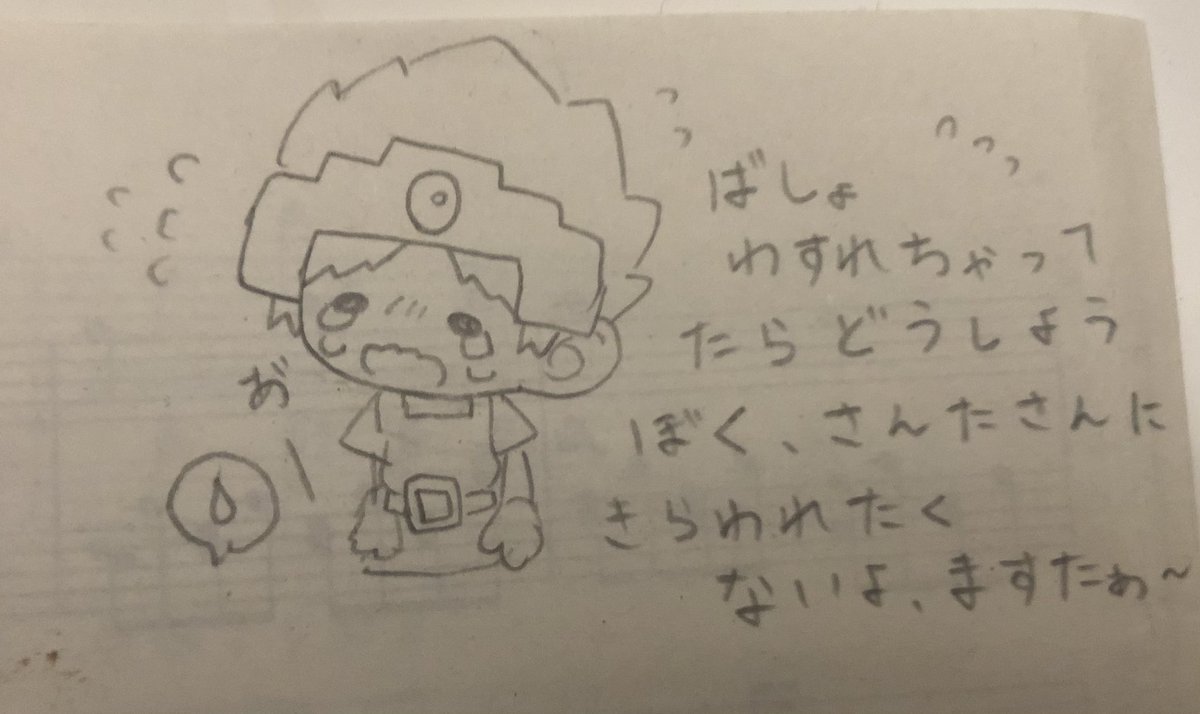 ばしょ
わすれちゃって
たらどうしよう
ぼく、さんたさんに
きらわれたく
ないよ、ますたぁ~
お